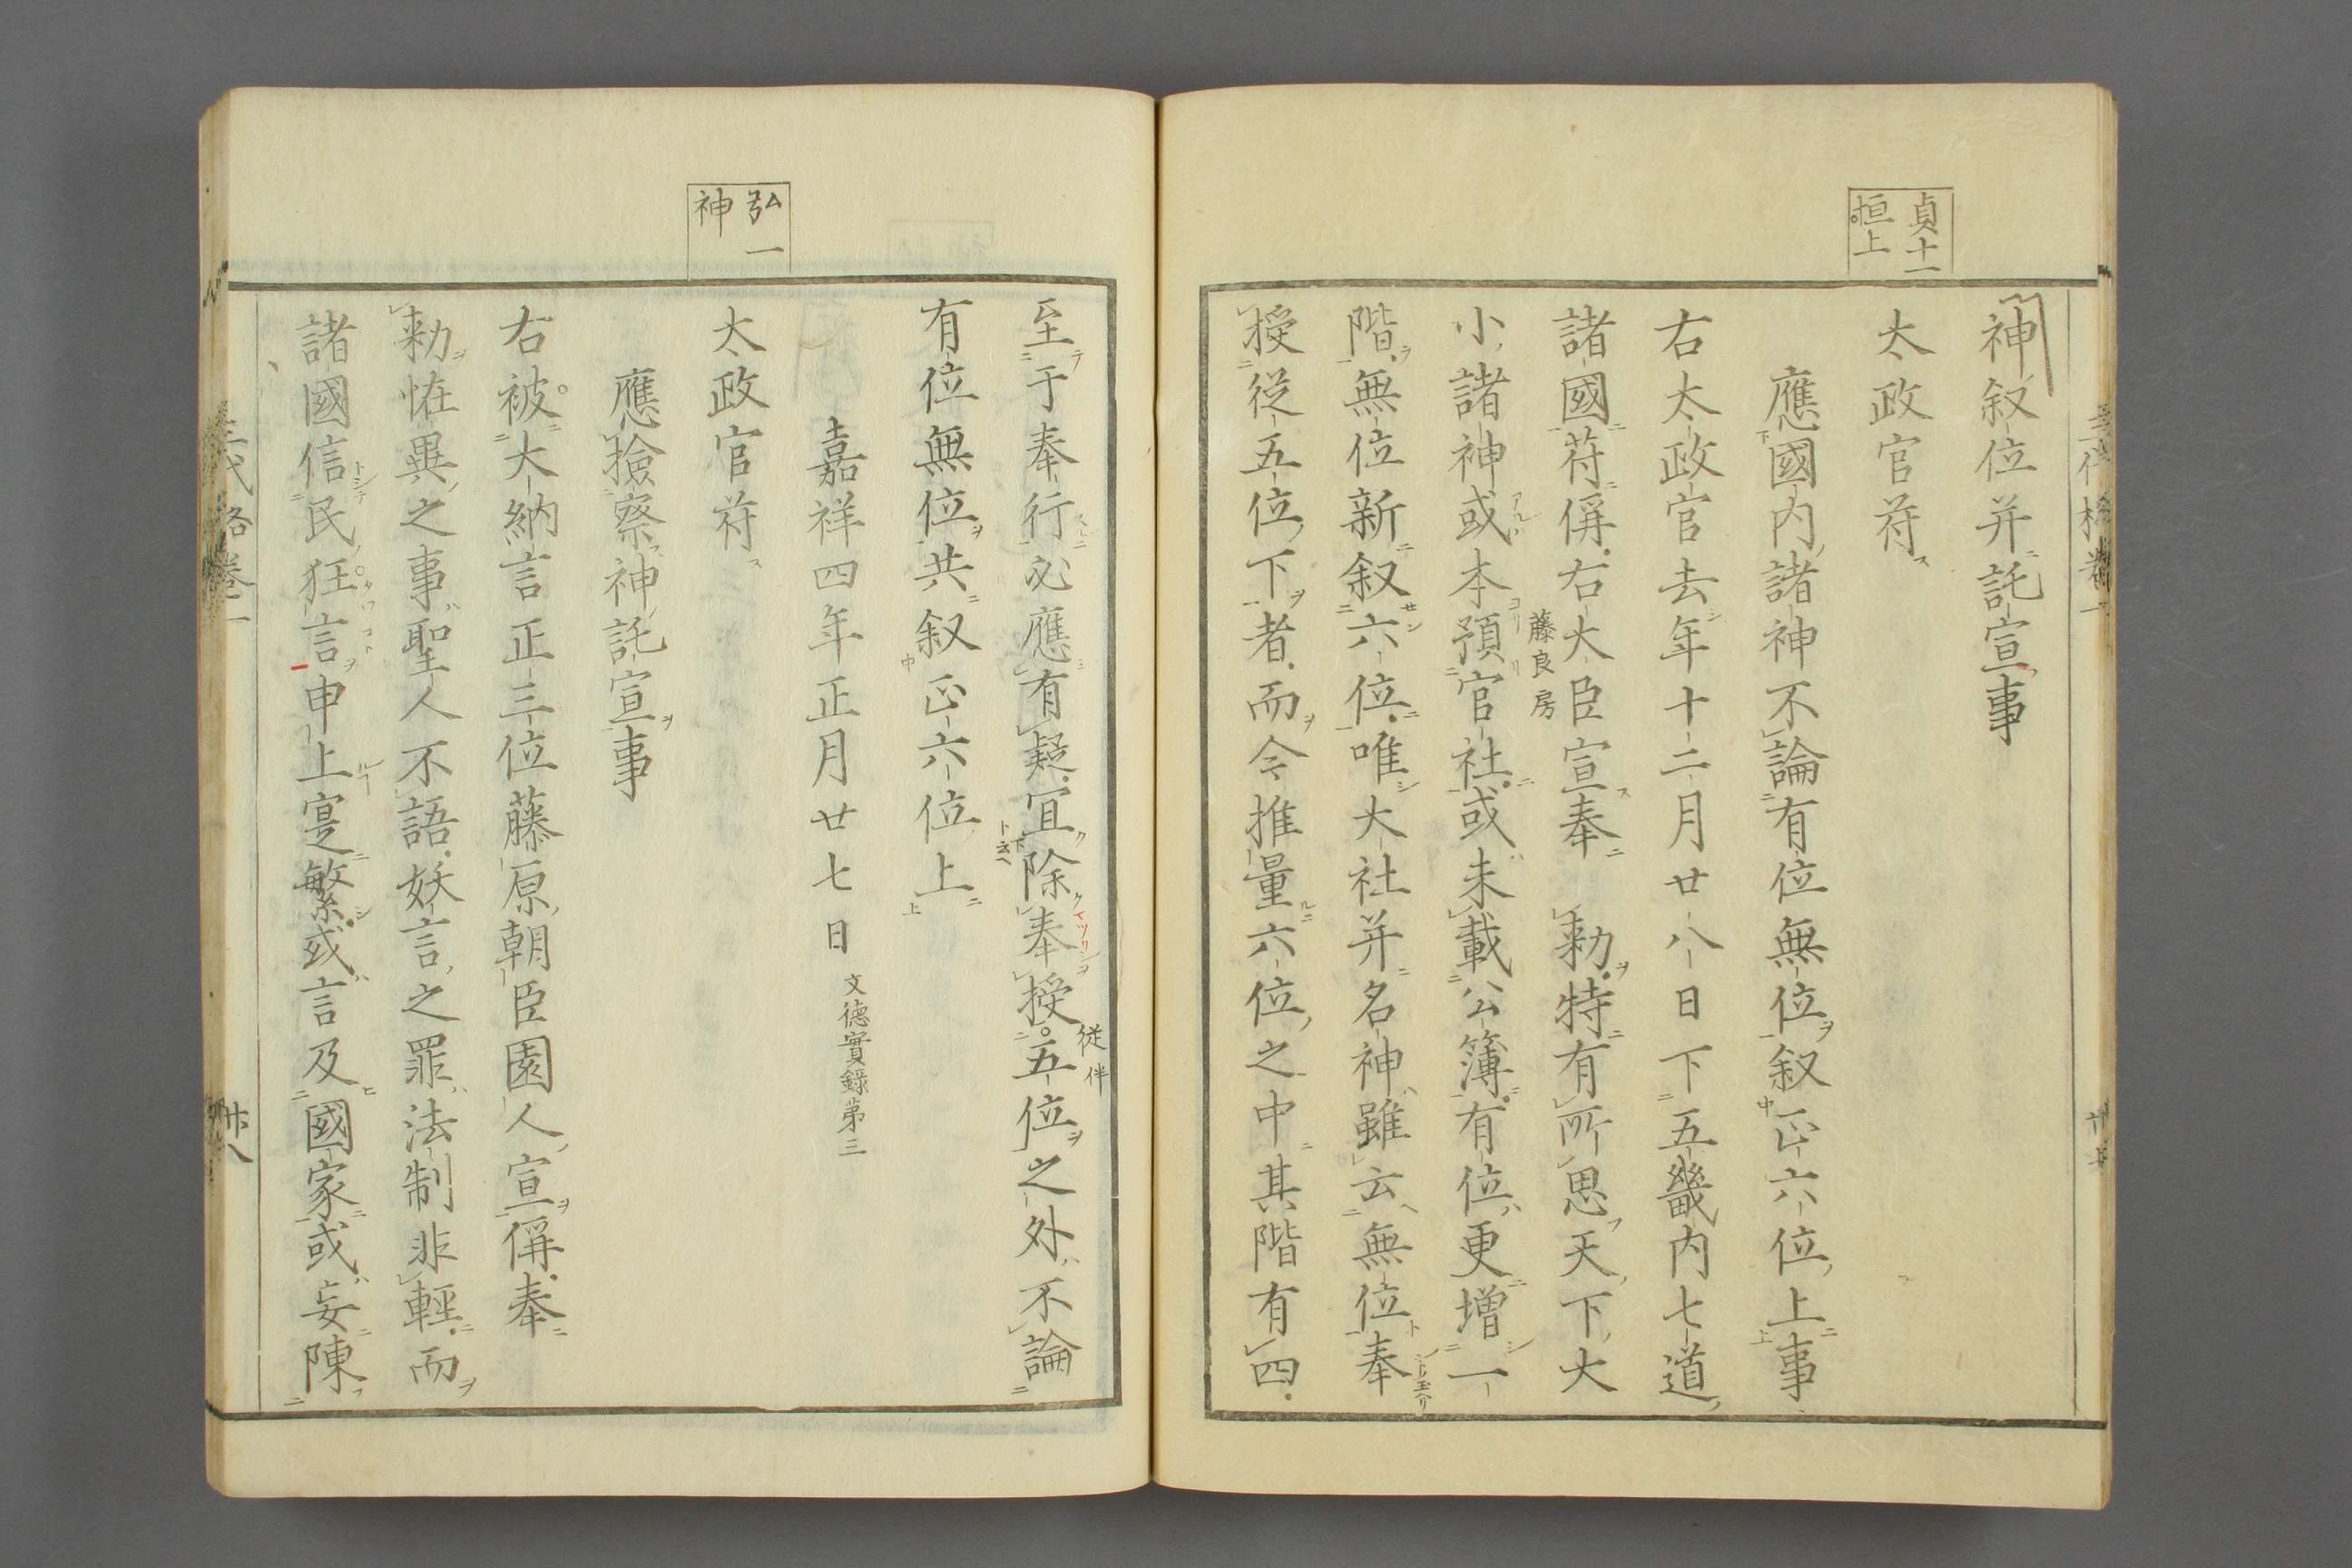 貞十一
恒上
神叙位并託宣事
太政官符
應國内諸神不論有位無位叙正六位上事
右太政官去年十二月廿八日下五畿内七道
諸國符偁右大臣宣奉　勅特有所思天下大
藤良房
小諸神或本預官社或未載公簿有位更增一
階無位新叙六位唯大社并名神雖云無位奉
授從五位下者而今推量六位之中其階有四
弘一
神
至于奉行必應有疑宜除奉授五位之外不論
從 伴
有位無位共叙正六位上
嘉祥四年正月廿七日 文德實錄第三
太政官符
應撿察神託宣事
右被大納言正三位藤原朝臣園人宣偁奉
勅恠異之事聖人不語妖言之罪法制非輕而
諸國信民狂言申上寔繁或言及國家或妄陳
三代格卷一